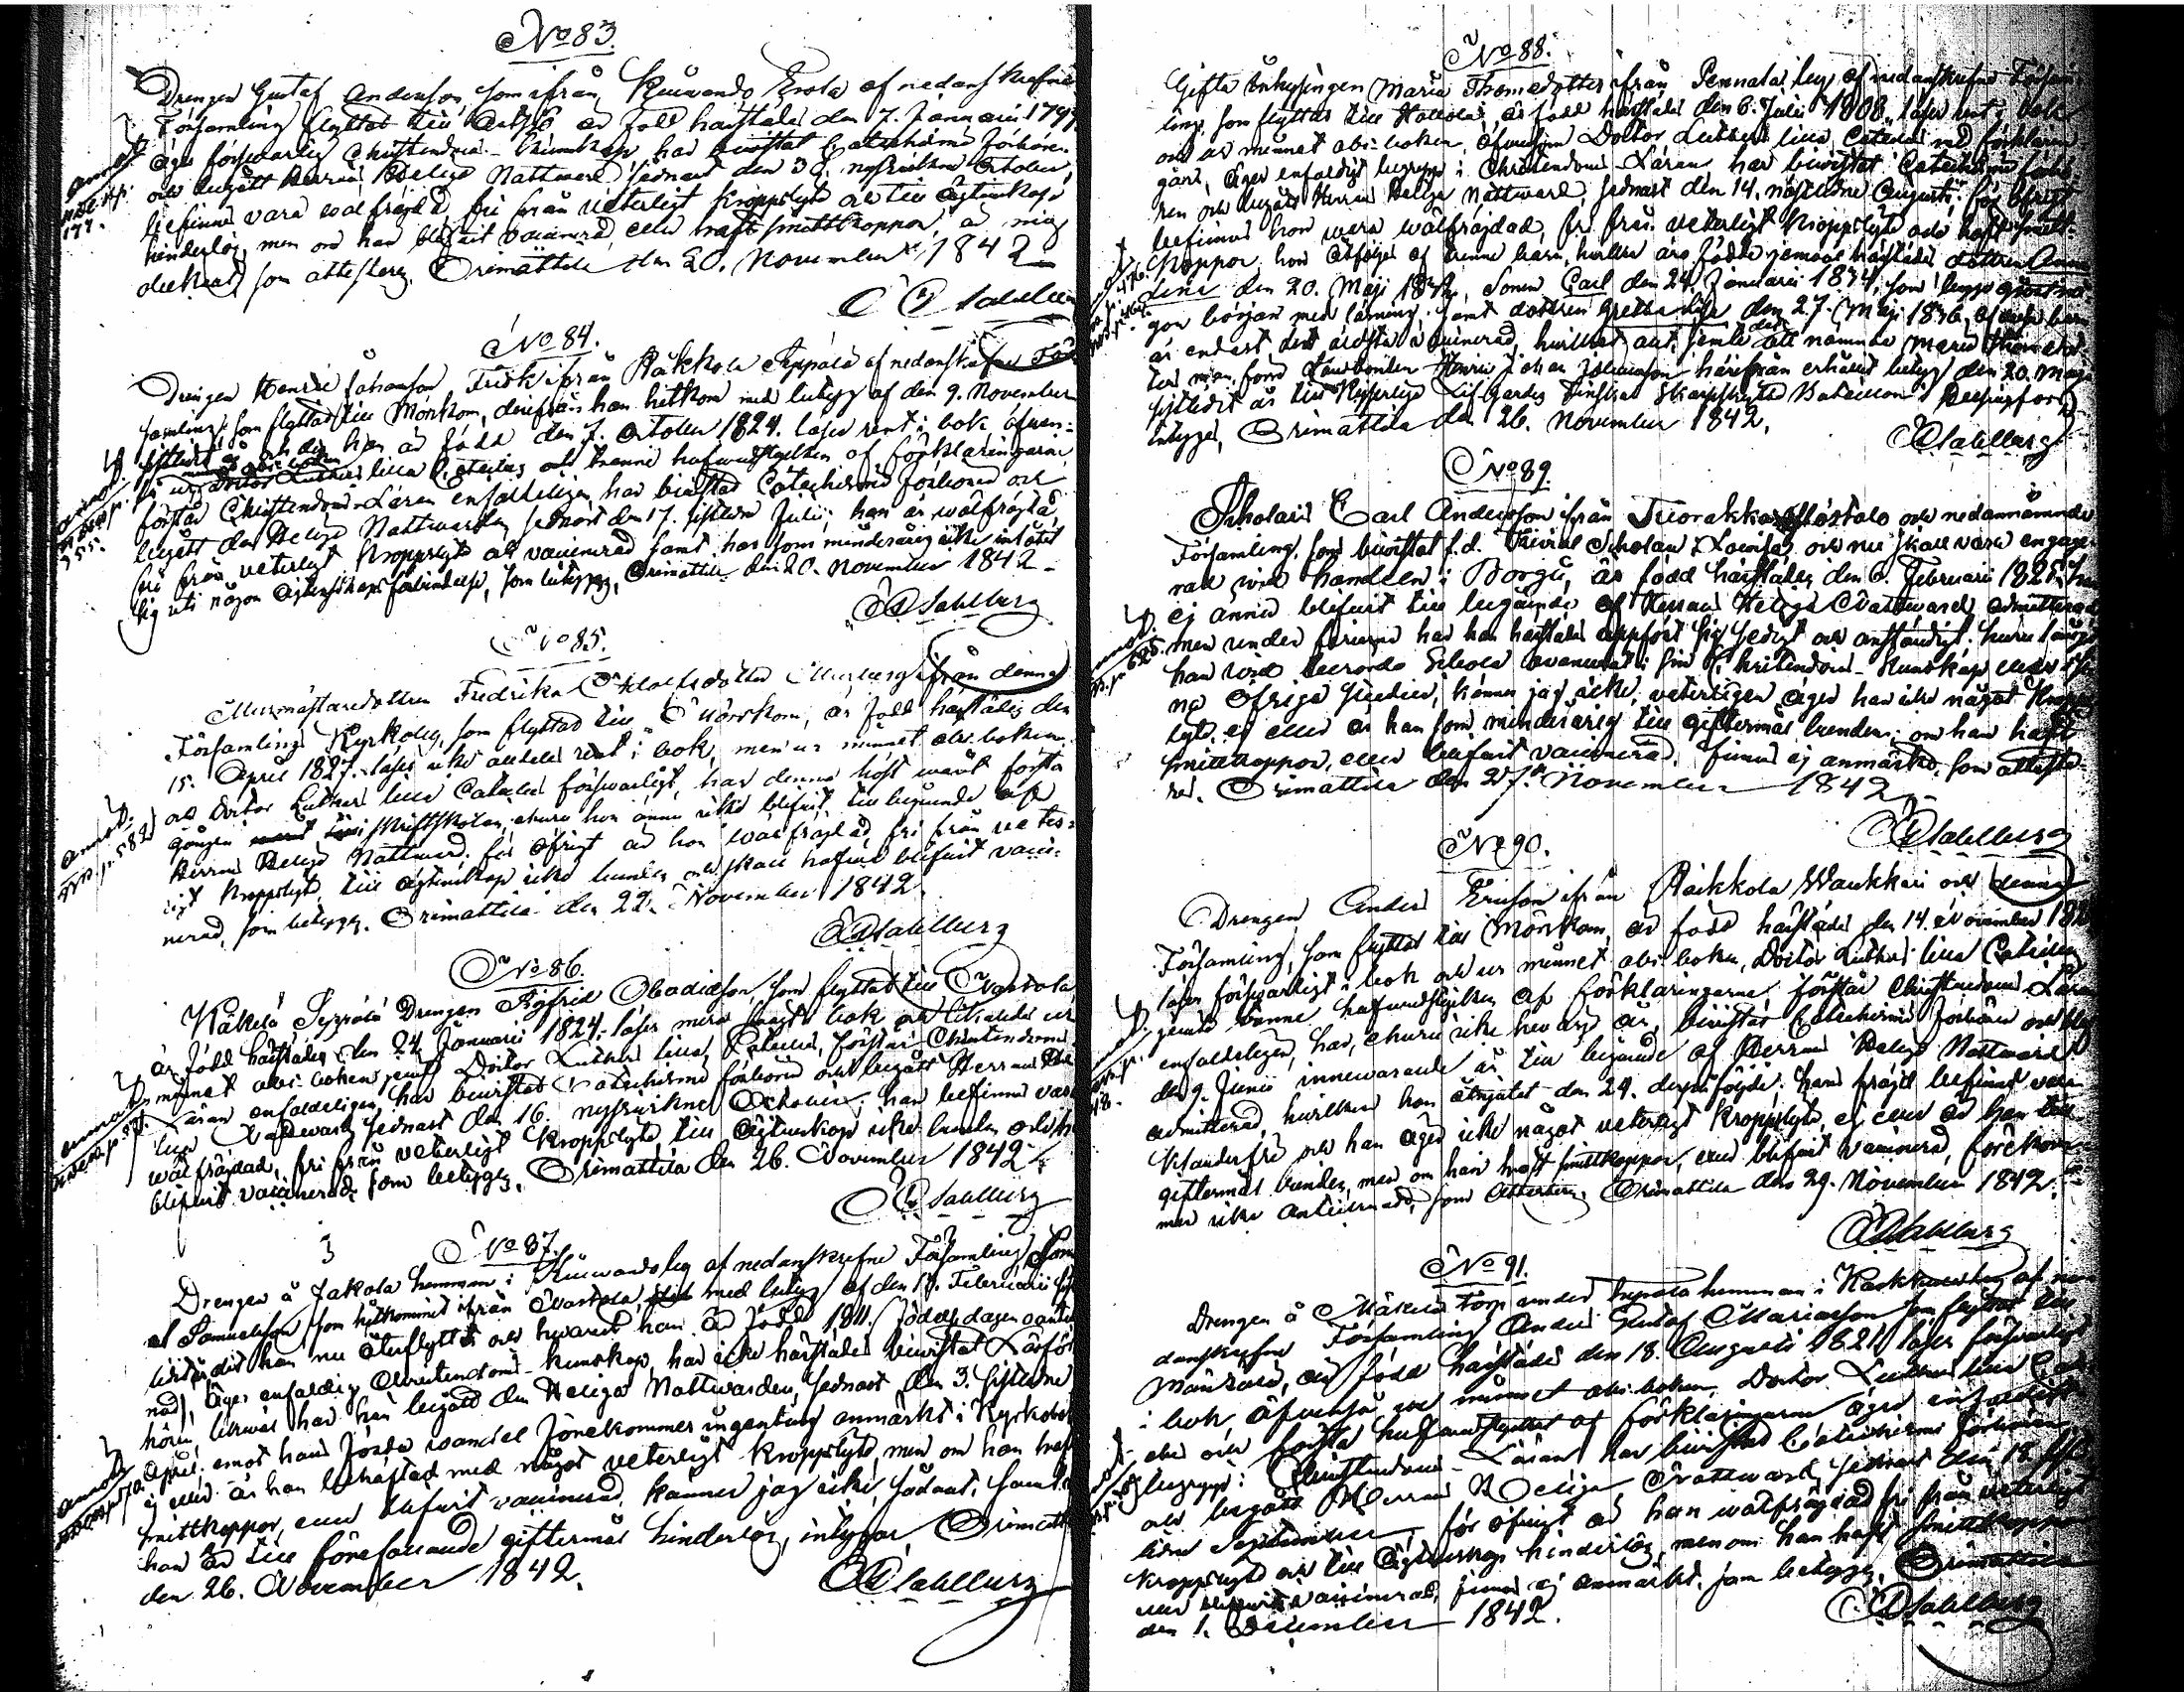 No 83.
Drengen Gustaf Anderson, som ifrån Kuivando Erola af nedanskrefne
Församling flyttat till är född härstädes den 7. Januarii 179
äger försvarlig Christendoms-kunskap, har bivistat Catechismi förhören
och begått Herrans Helige Nattvard, sednast den 30. nyssvikne October,
befinnes vara välfrägdad, fri från veterligt kroppslyte och till ägtenskap
hinderlös, men om han blifvit vaccinerad, eller haft smittkoppor, är mig
obekant, som attesteras. Orimattila den 20. November 1842
Sahlberg
No 84.
Drengen Henric Johansson Frisk ifrån Räkkola Seppälä af nedanskrefne För
samling, som flyttat till Mörskom, derifrån han hitkom med betyg af den 9. November
sistledit år och der han är född den 7. October 1824. läser rent i bok äfven
Doctor Luthers lilla Cateches och trenne hufvudstycken af förklaringarne
förstår Christendoms-Läran enfaldeligen, har bivistat Catechismi förhören och
begått den Helige Nattvarden, sednast den 17. sistledne Julii, han är välfrägdad,
fri från veterligt kroppslyte och vaccinerad samt har som minderårig icke inlåtit
sig uti någon ägtenskaps förbindelse, som betygas, Orimattila den 20. November 1842
Sahlberg
No 85.
Murmästaredottren Fredrika ifrån denna
Församlings Kyrkoby, som flyttat till Mörskom, är född härstädes den
15. April 1827. läser icke aldeles rent i bok, men ur minnet abc-boken
och Doctor Luthers lilla Cateches försvarligt, har denna höst warit första
gången i skriftskolan, ehuru hon ännu icke blifvit till begående af
Herrans Helige Nattvard. för öfrigt är hon wälfrägdad, fri från veter-
ligt kroppslyte, till ägtenskap icke bunden och skall hafva blifvit vacci-
nerad, som betygas. Orimattila den 22. November 1842
Sahlberg
No 86.
Käkelä Seppälä Drengen Sigfrid Obadiason, som flyttat till Nastola
är född härstädes den 24. Januarii 1824. läser bok
minnet abc-boken jemte Doctor Luthers lilla Cateches, förstår Christendoms
Läran enfaldeligen, har bivistat Catechismi förhören och begått Herrans He
lige Nattvard, sednast den 16. nyssvikne October, han befinnes vara
wälfrägdad, fri från veterligt kroppslyte, till ägtenskap icke bunden och
blifvit vaccinerad, som betygas. Orimattila den 26. November 1842
Sahlberg
No 87.
Drengen å Jakola hemman i Kuivando by af nedanskrefne Församling
Samuelsson, som hitkommit ifrån Nastola, med betyg af den 17. Februarii
dit han nu återflyttat och hvarest han är född 1811. födelsedagen
äger enfaldig Christendoms-kunskap, har icke härstädes bivistat Läsför
hören, likväl har han begått den Heliga Nattvarden, sednast den 3. sistledne
April, emot hans förda wandel förekommer ingenting anmärkt i Kyrkobok
ej eller är han behäftad med något veterligt kroppslyte, men om han haft
smittkoppor, eller blifvit vaccinerad, känner jag icke, sådant, samt
han är till förefallande giftermål hinderlös, intygar, Orimattila
den 26. November 1842.
Sahlberg
No 88.
Gifta Maria Thomasdotter ifrån Pennala by af nedanskrefne Försam
ling, som flyttat till Hollola, är född härstädes den 6. Julii 1808. läser rent i bok
och ur minnet abc-boken, äfvensom Doctor Luthers lilla Cateches med förklarin
garne, äger enfaldigt begrepp i Christendoms-Läran, har bivistat Catechismi förhö
ren och begått Herrans Helige Nattvard, sednast den 14. nästledne Augusti; för öfrigt
befinnes hon vara wälfrägdad, fri från veterligt kroppslyte och haft smitt-
koppor. hon åtföljes af trenne barn, hvilka äro födde jemväl härstädes dottren Anna
den 20. Maji 1832, Sonen Carl den 24. Januarii 1834, som begge gjort nå
gon början med läsning, samt dottren Gretha den 27. Maji 1836, af dessa barn
är endast det äldsta vaccinerad, hvilket allt, jemte det att nämnde Maria Thomasdot
ters man, förra Landbonden Henric Johan Johansson härifrån erhållit betyg den 20. Maji
sistledit år till Kejserliga Lif-Gardes Finska Skarpskytte Bataillon i Helsingfors,
intygas, Orimattila den 26. November 1842.
Sahlberg
No 89.
Scholaris Carl Andersson ifrån Tuorakka och nedannämnde
Församling, som bivistat f.d. Trivial Scholan i Lovisa och nu skall vara engage-
rad vid handeln i Borgå, är född härstädes den 6. Februarii 1825, har
ej ännu blifvit till begående af Herrans Heliga Nattvard admitterad,
men under ferierna har han härstädes uppfört sig sedigt och anständigt. huru långt
han vid berörde Schola avancerat i sin Christendoms-kunskap eller i si
na öfriga studier, känner jag icke, veterligen äger han icke något kropps
lyte, ej eller är han som minderårig till giftermål bunden; om han haft
smittkoppor, eller blifvit vaccinerad, finnes ej anmärkt, som atteste
res. Orimattila den 27. November 1842
Sahlberg
No 90.
Drengen Anders Ericson ifrån Räkkola Waukkari och denna
Församling, som flyttat till Mörskom, är född härstädes den 14. November 182
läser försvarligt i bok och ur minnet abc-boken, Doctor Luthers lilla Cateches
jemte tvenne hufvudstycken af förklaringarne, förstår Christendoms Läran
enfaldeligen, har, ehuru icke hvarje år, bivistat Catechismi förhören och blef
den 9. Junii innevarande år till begående af Herrans Helige Nattvard
admitterad, hvilken han åtnjutit den 24. derpåföljde; hans frägd befinnes vara
klanderfri och han äger icke något veterligt kroppslyte, ej eller är han till
giftermål bunden, men om han haft smittkoppor, eller blifvit vaccinerad, förekom-
mer icke antecknadt, som attesteras. Orimattila den 29. November 1842.
Sahlberg
No 91.
Drengen å Mäkelä Torp under hemman i Karkkula by af ne
danskrefne Församling Anders Gustaf Mariasson som flyttat till
Mäntsälä, är född härstädes den 18. Augusti 1821, läser försvarligt
i bok, äfvenså ur minnet abc-boken, Doctor Luthers lilla Cate
ches och första hufvudstycket af förklaringarne, äger enfaldigt
begrepp i Christendoms-Läran, har bivistat Catechismi förhören
och begått Herrans Helige Nattvard, sednast den 18. sist
ledne September, för öfrigt är han wälfrägdad, fri från veterligt
kroppslyte och till ägtenskap hinderlös, men om han haft smittkoppor
eller blifvit vaccinerad, finnes ej anmärkt, som betygas, Orimattila
den 1. December 1842.
Sahlberg